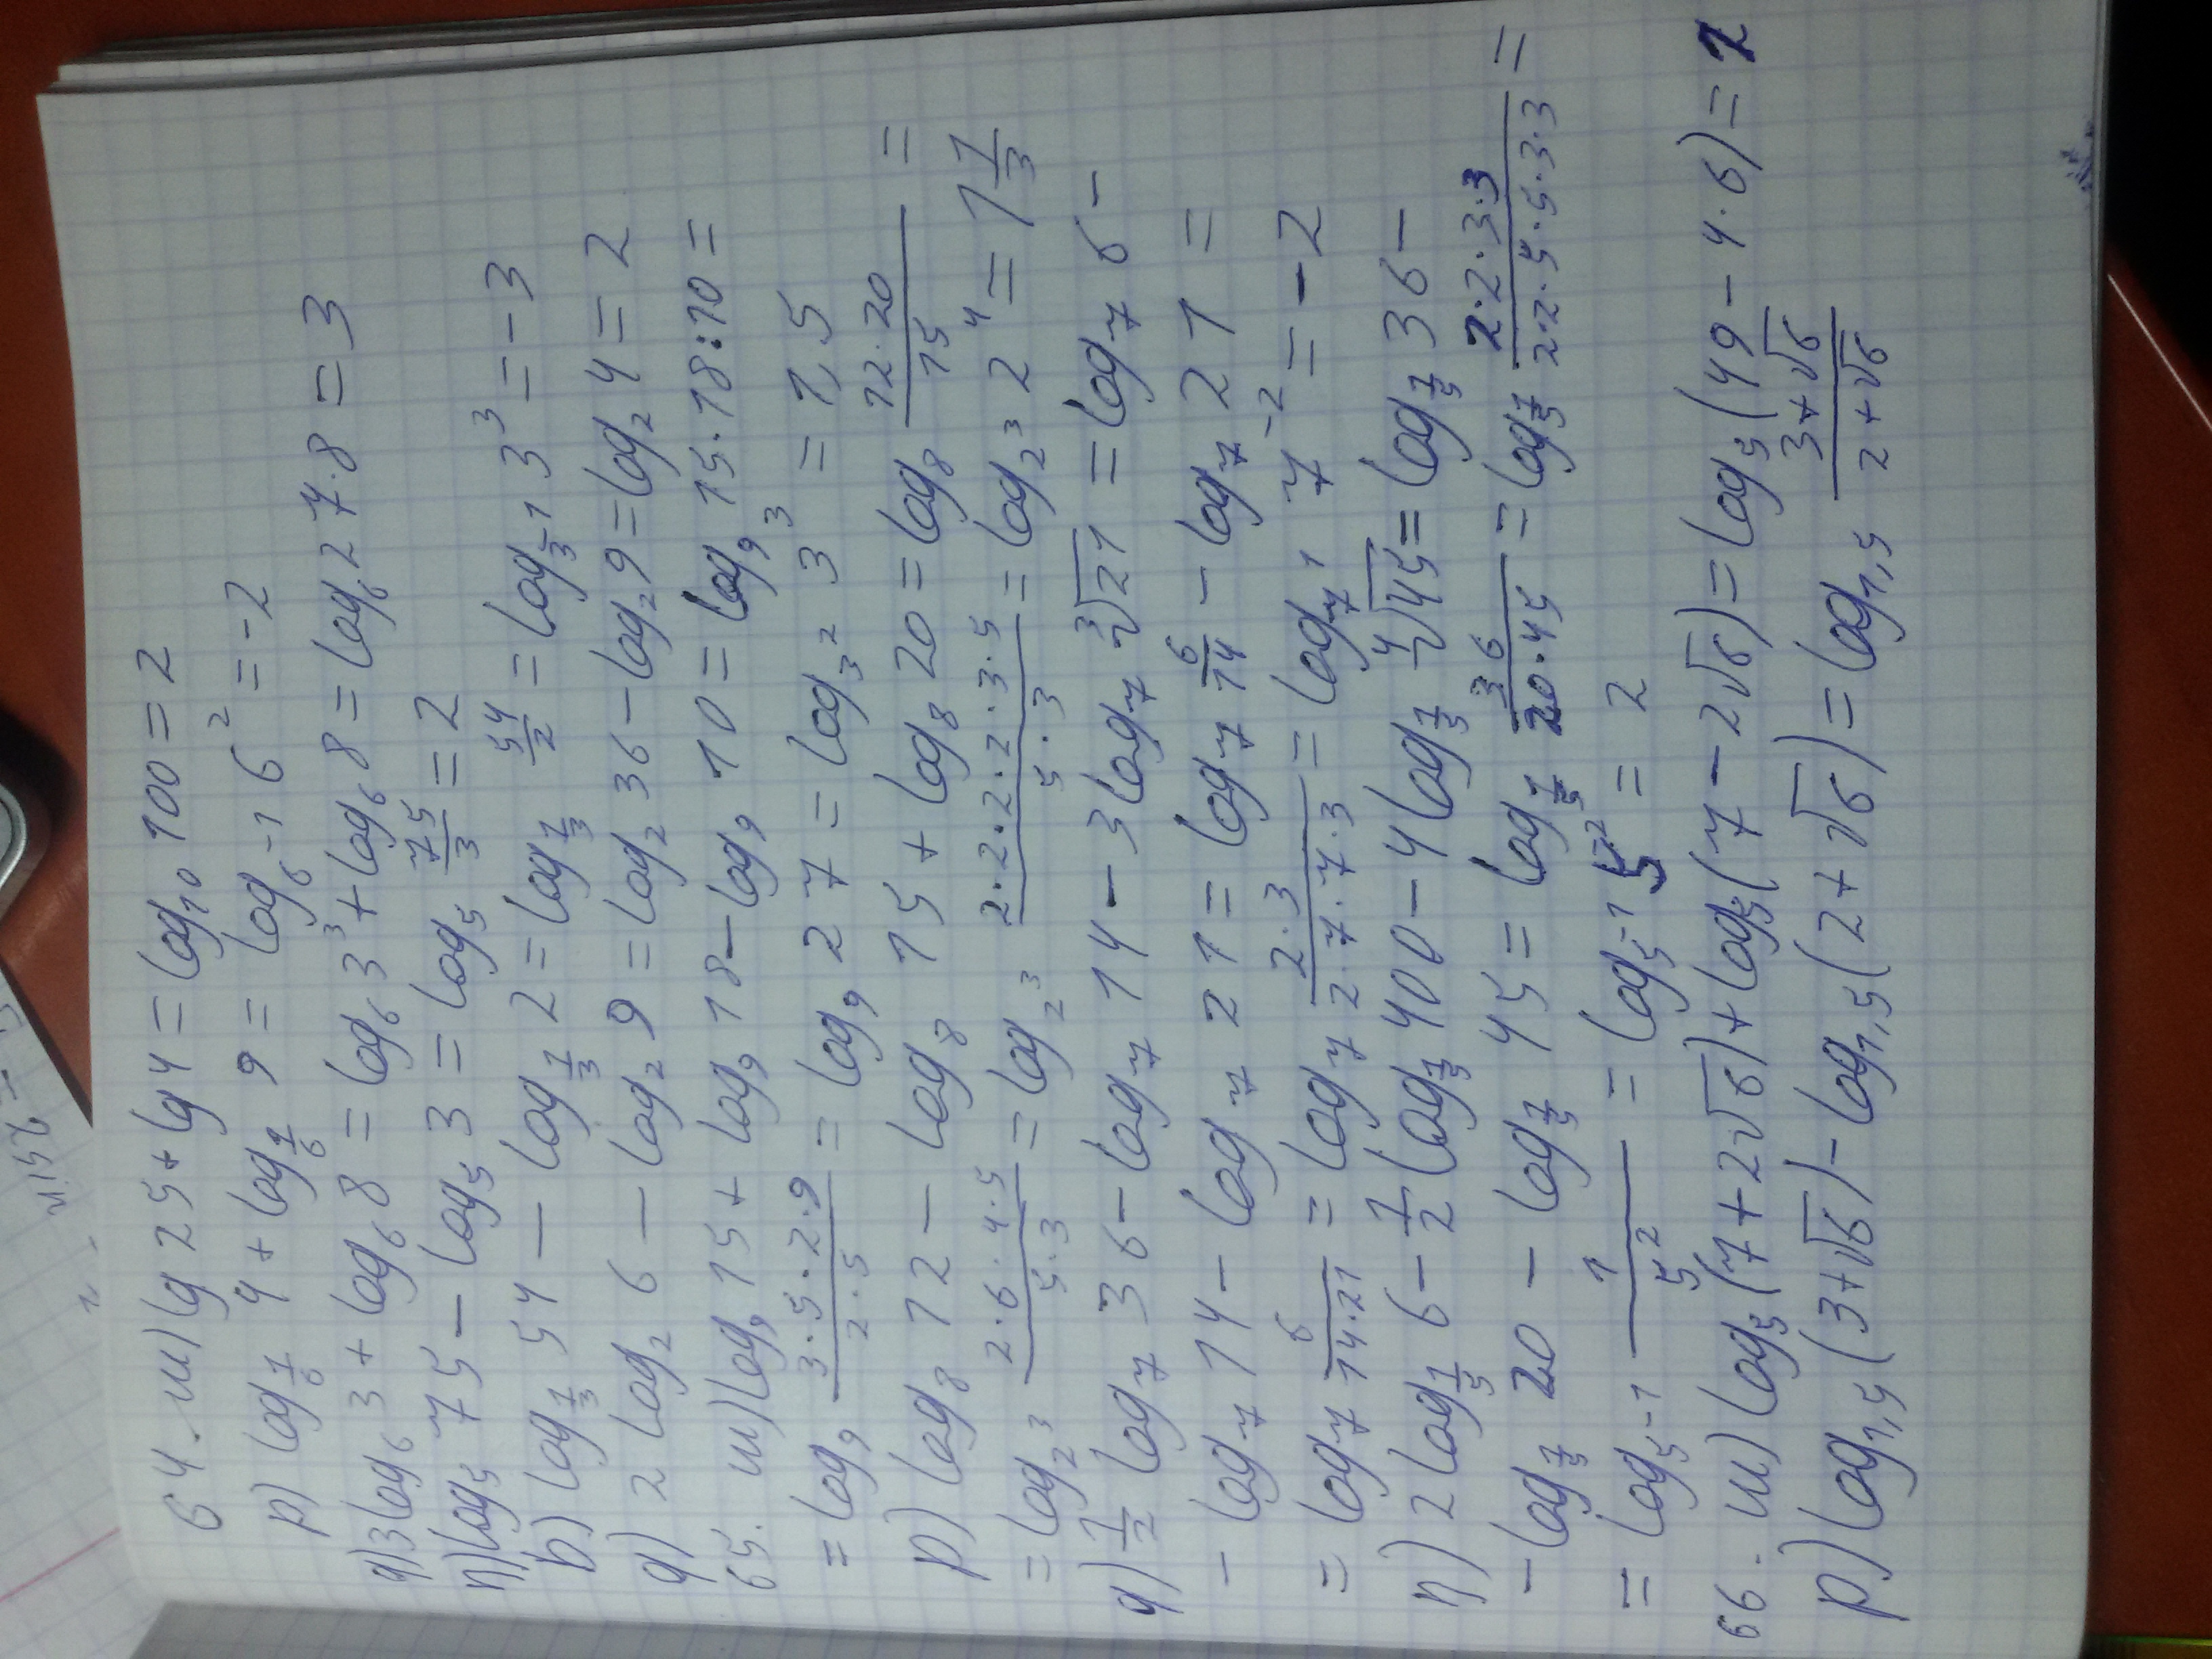 64. ш) lg 25 + lg 4 = log₁₀ 100 = 2
р) log_{1/6} 4 + log_{1/6} 9 = log_{6⁻¹} 6² = -2
q) 3 log₆ 3 + log₆ 8 = log₆ 3³ + log₆ 8 = log₆ 27·8 = 3
η) log₅ 75 - log₅ 3 = log₅ 75/3 = 2
b) log_{1/3} 54 - log_{1/3} 2 = log_{1/3} 54/2 = log_{3⁻¹} 3³ = -3
g) 2 log₂ 6 - log₂ 9 = log₂ 36 - log₂ 9 = log₂ 4 = 2
65. ш) log₉ 15 + log₉ 18 - log₉ 10 = log₉ 15·18:10 =
= log₉ (3·5·2·9)/(2·5) = log₉ 27 = log_{3²} 3³ = 1,5
р) log₈ 12 - log₈ 15 + log₈ 20 = log₈ (12·20)/15 =
= log_{2³} (2·6·4·5)/(5·3) = log_{2³} (2·2·2·2·3·5)/(5·3) = log_{2³} 2⁴ = 1 1/3
q) 1/2 log₇ 36 - log₇ 14 - 3 log₇ ∛21 = log₇ 6 -
- log₇ 14 - log₇ 21 = log₇ 6/14 - log₇ 21 =
= log₇ 6/(14·21) = log₇ (2·3)/(2·7·7·3) = log_{7¹} 7⁻² = -2
η) 2 log_{1/5} 6 - 1/2 log_{1/5} 400 - 4 log_{1/5} ∜45 = log_{1/5} 36 -
- log_{1/5} 20 - log_{1/5} 45 = log_{1/5} 36/(20·45) = log_{1/5} (2·2·3·3)/(2·2·5·5·3·3) =
= log_{5⁻¹} 1/5² = log_{5⁻¹} 5⁻² = 2
66. ш) log₅(7+2√6) + log₅(7-2√6) = log₅(49-4·6) = 2
р) log_{1,5}(3+√6) - log_{1,5}(2+√6) = log_{1,5} (3+√6)/(2+√6)